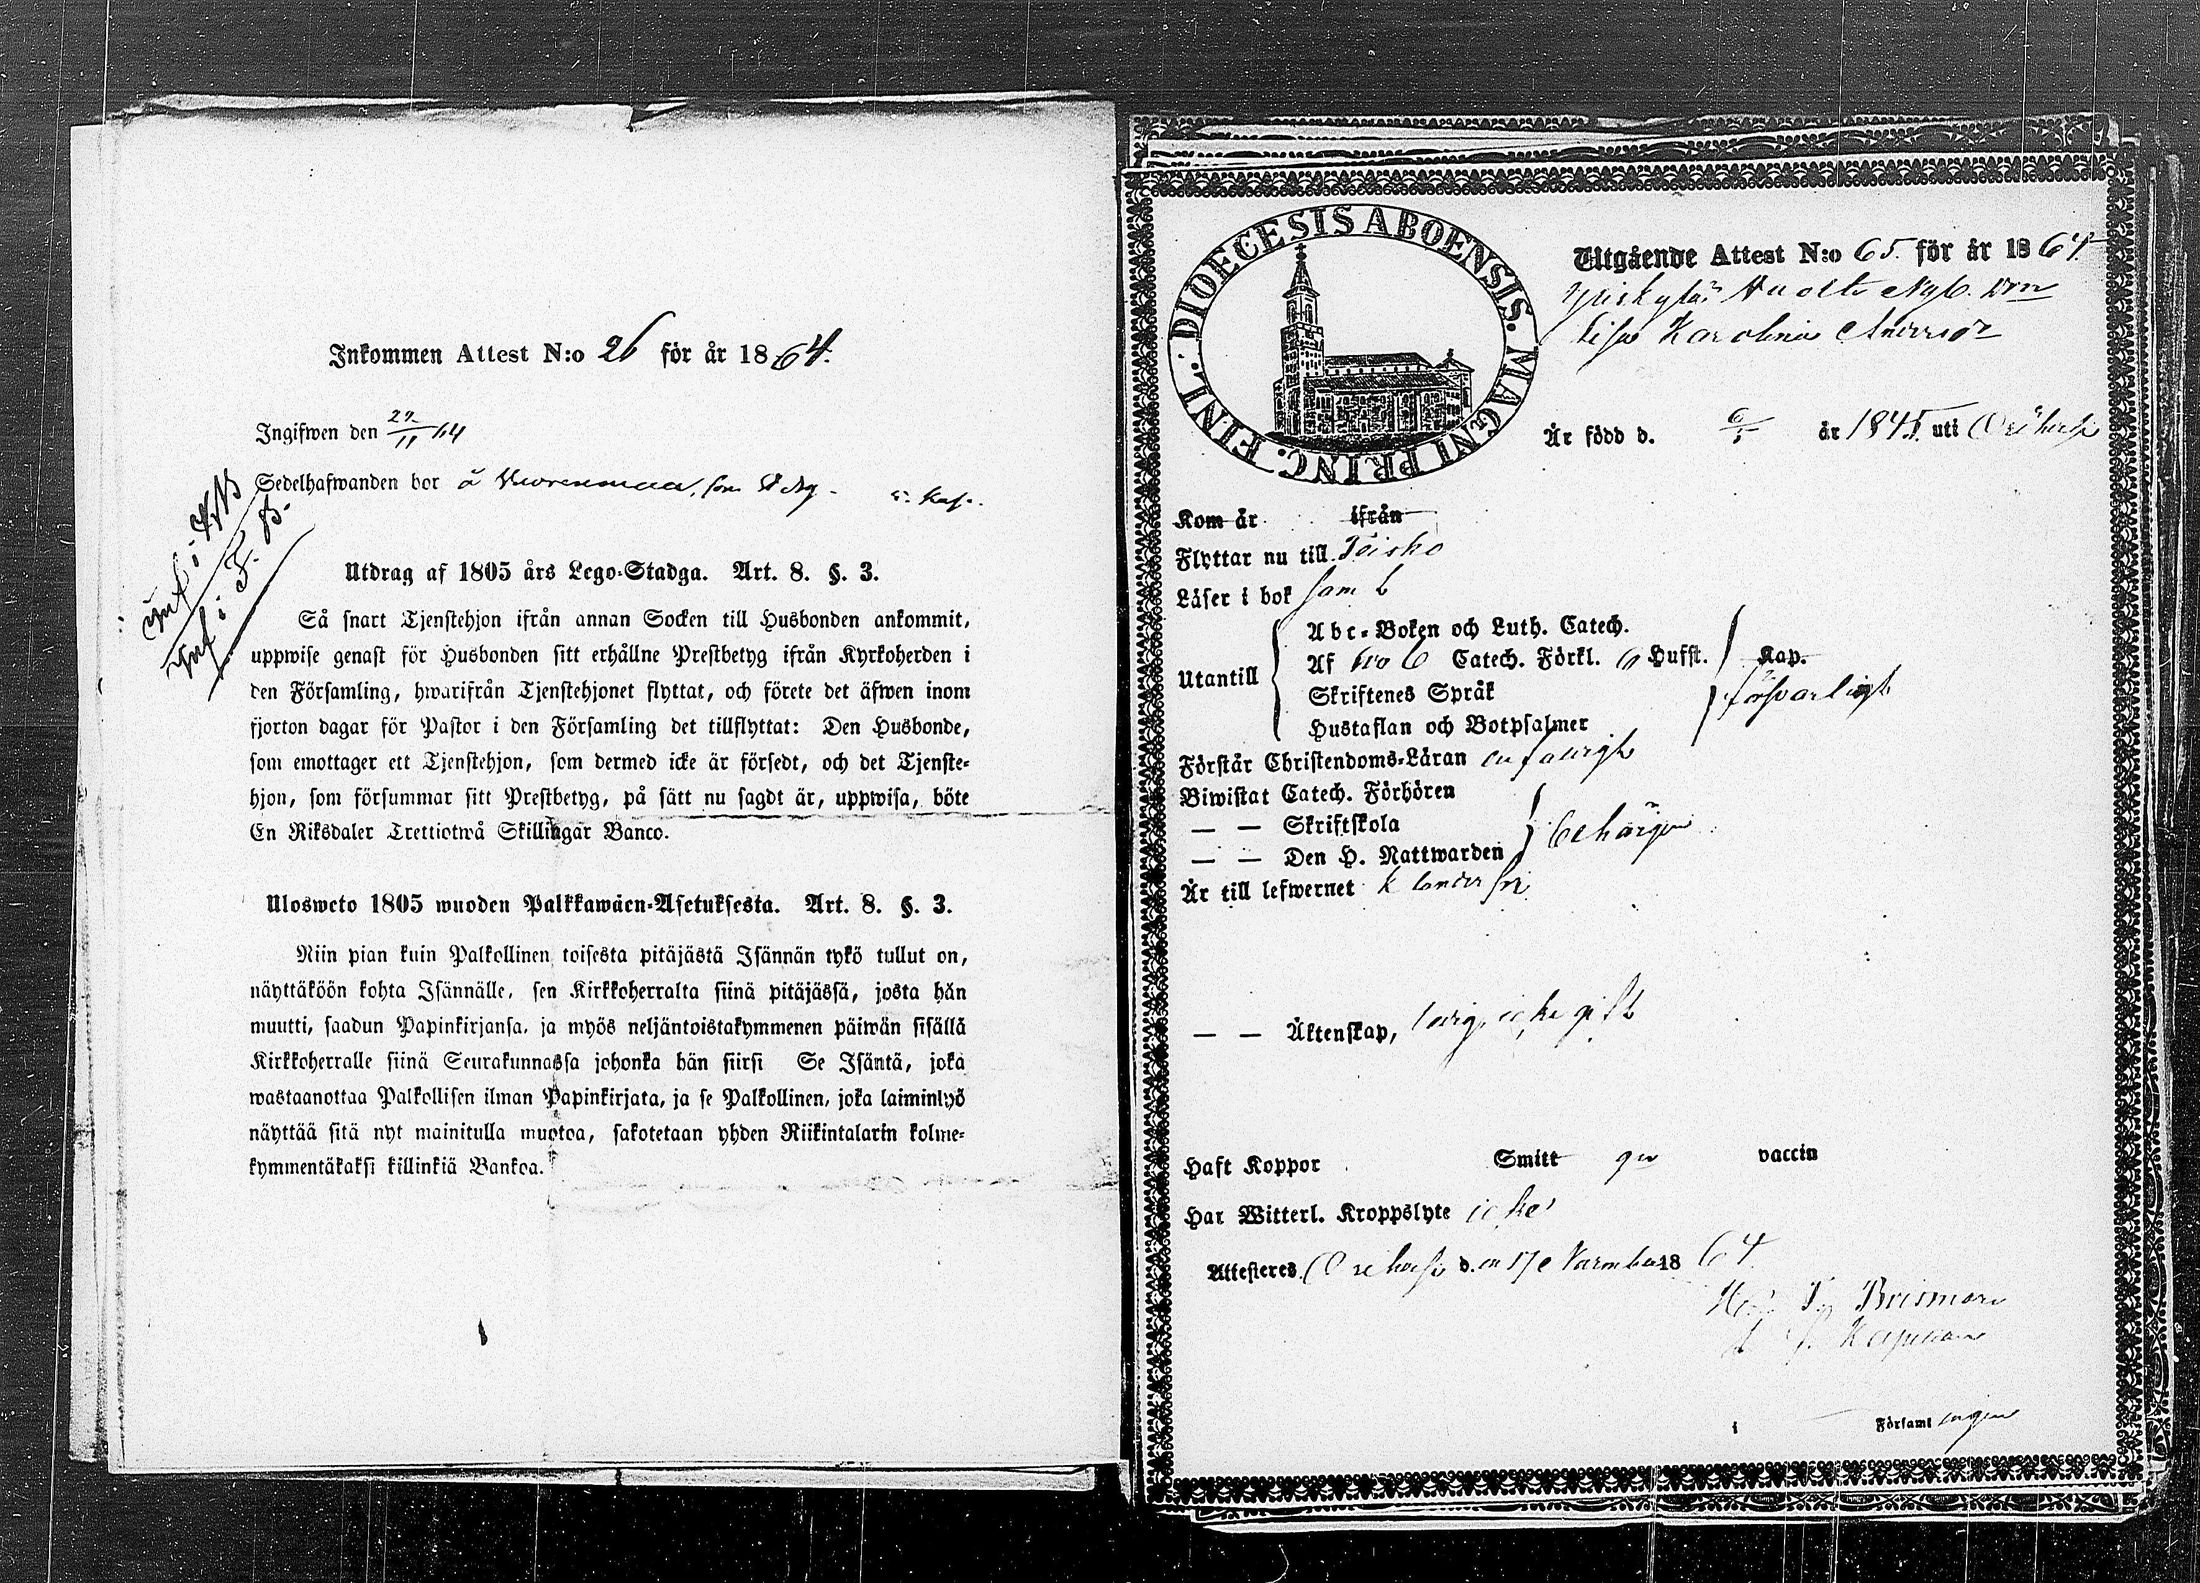 Inkommen Attest N:o 26 för år 1864.
Ingifwen den 22/11 64
Sedelhafwanden bor å
Utdrag af 1805 års Lego-Stadga. Art. 8. §. 3.
Så snart Tjenstehjon ifrån annan Socken till Husbonden ankommit,
uppwise genast för Husbonden sitt erhållne Prestbetyg ifrån Kyrkoherden i
den Församling, hwarifrån Tjenstehjonet flyttat, och förete det äfwen inom
fjorton dagar för Pastor i den Församling det tillflyttat: Den Husbonde,
som emottager ett Tjenstehjon, som dermed icke är försedt, och det Tjenste-
hjon, som försummar sitt Prestbetyg, på sätt nu sagdt är, uppwisa, böte
En Riksdaler Trettiotwå Skillingar Banco.
Ulosweto 1805 wuoden Palkkawäen-Asetuksesta. Art. 8. §. 3.
Niin pian kuin Palkollinen toisesta pitäjästä Isännän tykö tullut on,
näyttäköön kohta Isännälle, sen Kirkkoherralta siinä pitäjässä, josta hän
muutti, saadun Papinkirjansa, ja myös neljäntoistakymmenen päiwän sisällä
Kirkkoherralle siinä Seurakunnassa johonka hän siirsi Se Isäntä, joka
wastaanottaa Palkollisen ilman Papinkirjata, ja se Palkollinen, joka laiminlyö
näyttää sitä nyt mainitulla muotoa, sakotetaan yhden Riikintalarin kolme-
kymmentäkaksi killinkiä Bankoa.
DIOECESIS ABOENSIS. MAGNI PRINC. FINL.
Utgående Attest N:o 65. för år 1864.
Lisa Karolina
Är född d. 6/5 år 1845. uti Orihvesi
Kom år ifrån
Flyttar nu till Teisko
Läser i bok
Utantill
Abc-Boken och Luth. Catech.
Af Catech. Förkl. Hufst. Kap.
Skriftenes Språk försvarligt
Hustaflan och Botpsalmer
Förstår Christendoms-Läran
Biwistat Catech. Förhören
— — Skriftskola
— — Den H. Nattwarden
Är till lefwernet
— — Äktenskap, icke gift
Haft Koppor Smitt vaccin
Har Witterl. Kroppslyte icke
Attesteres d. 17 November 1864.
Brismare
Kapellan
i Församlingen